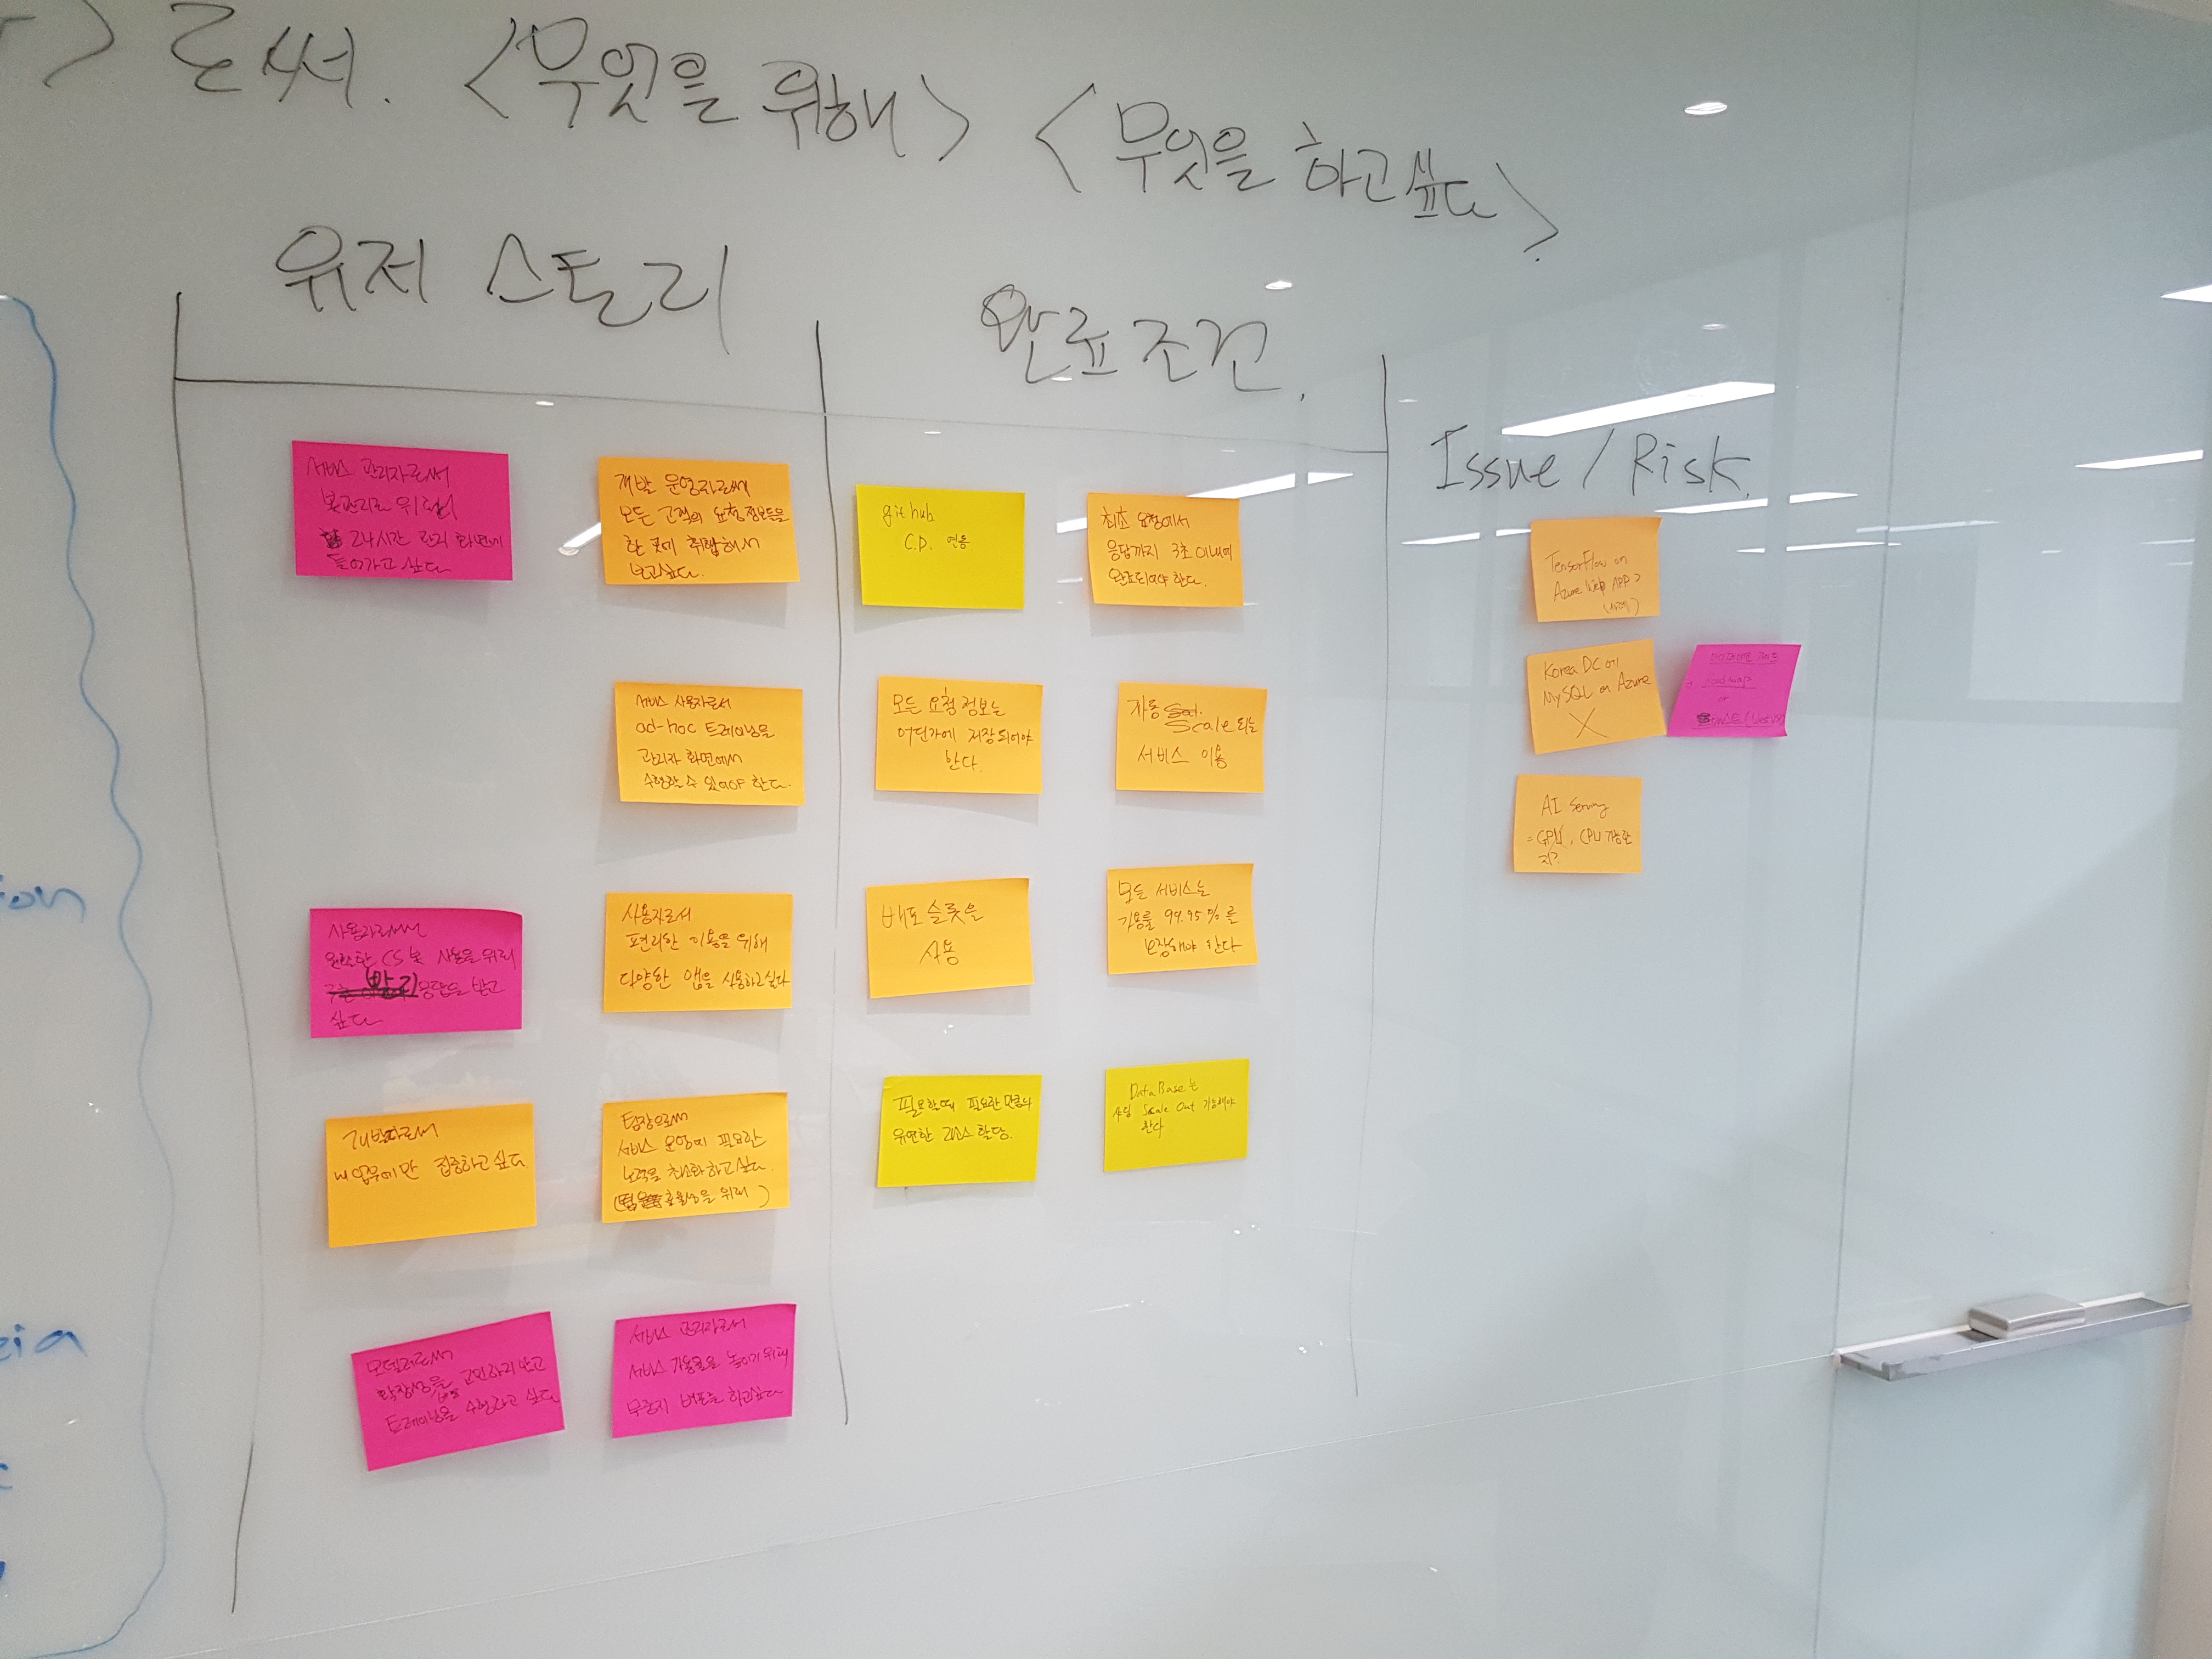 로써. <무엇을 위해> <무엇을 하고싶다>
유저 스토리
완료조건.
Issue / Risk.
서비스 관리자로써
봇관리를 위해
24시간 관리 화면에
들어가고 싶다
개발 운영자로써
모든 고객의 요청 정보들을
한 곳에 취합해서
보고싶다.
서비스 사용자로서
ad-hoc 트레이닝을
관리자 화면에서
수행할 수 있어야 한다.
사용자로써
원활한 CS 봇 사용을 위해
빨리 응답을 받고
싶다
사용자로서
편리한 이용을 위해
다양한 앱을 사용하고싶다
개발자로써
내 업무에만 집중하고 싶다
팀장으로써
서비스 운영에 필요한
노력을 최소화 하고싶다.
효율성을 위해 )
모델러로써
확장성을 고민하지 않고
트레이닝을 수행하고 싶다
서비스 관리자로서
서비스 가용률을 높이기 위해
무중지 배포를 하고싶다
github
C.D. 연동
최초 요청에서
응답까지 3초 이내에
완료되어야 한다.
모든 요청 정보는
어딘가에 저장되어야
한다.
자동
Scale 되는
서비스 이용
배포 슬롯을
사용
모든 서비스는
가용률 99.95%를
보장해야 한다
필요할때 필요한 만큼의
유연한 리소스 할당.
DataBase는
샤딩 Scale Out 가능해야
한다
TensorFlow on
Azure Web APP?
(사례)
Korea DC에
MySQL on Azure
X
roadmap
or
AI Serving
= GPU, CPU 가능한
지?